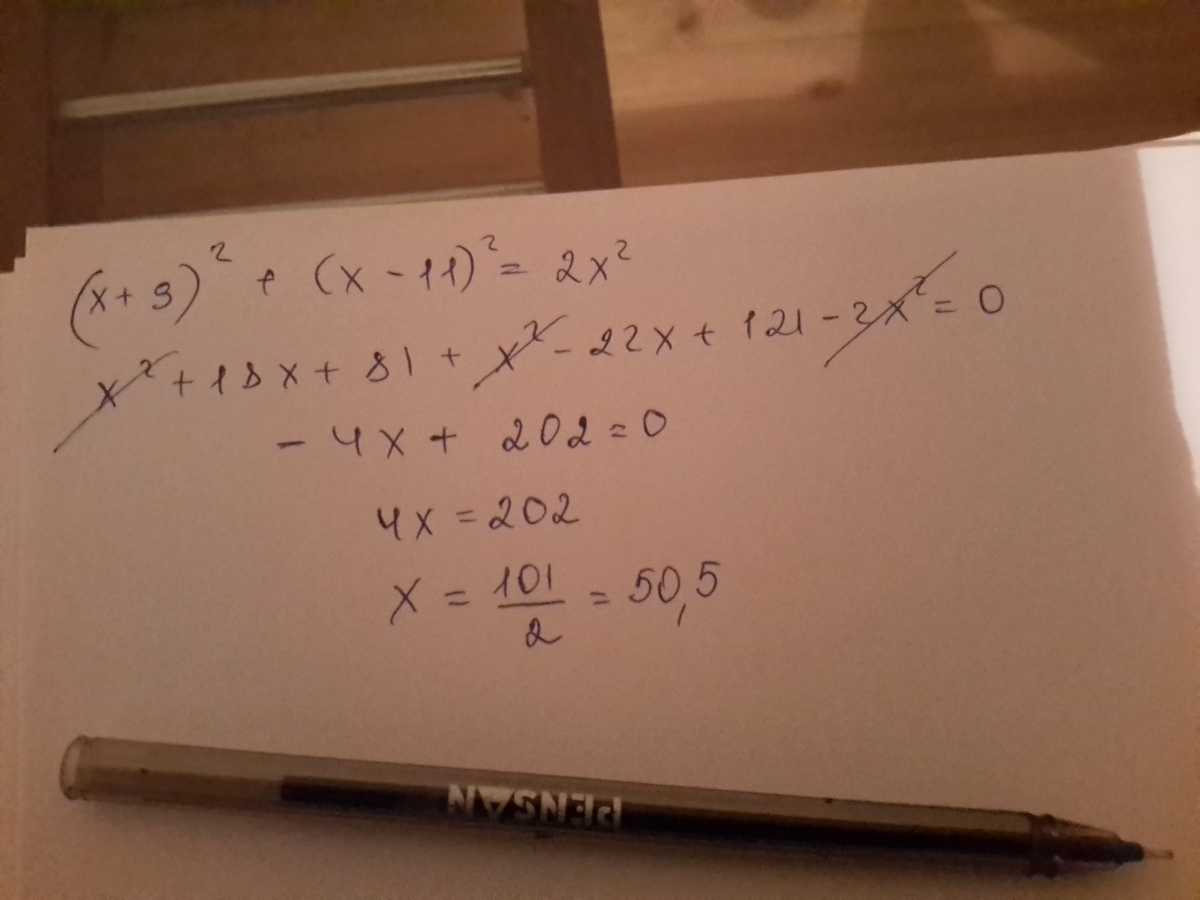 (x+9)² + (x-11)² = 2x²
x² + 18x + 81 + x² - 22x + 121 - 2x² = 0
- 4x + 202 = 0
4x = 202
x = 101/2 = 50,5
PENSAN